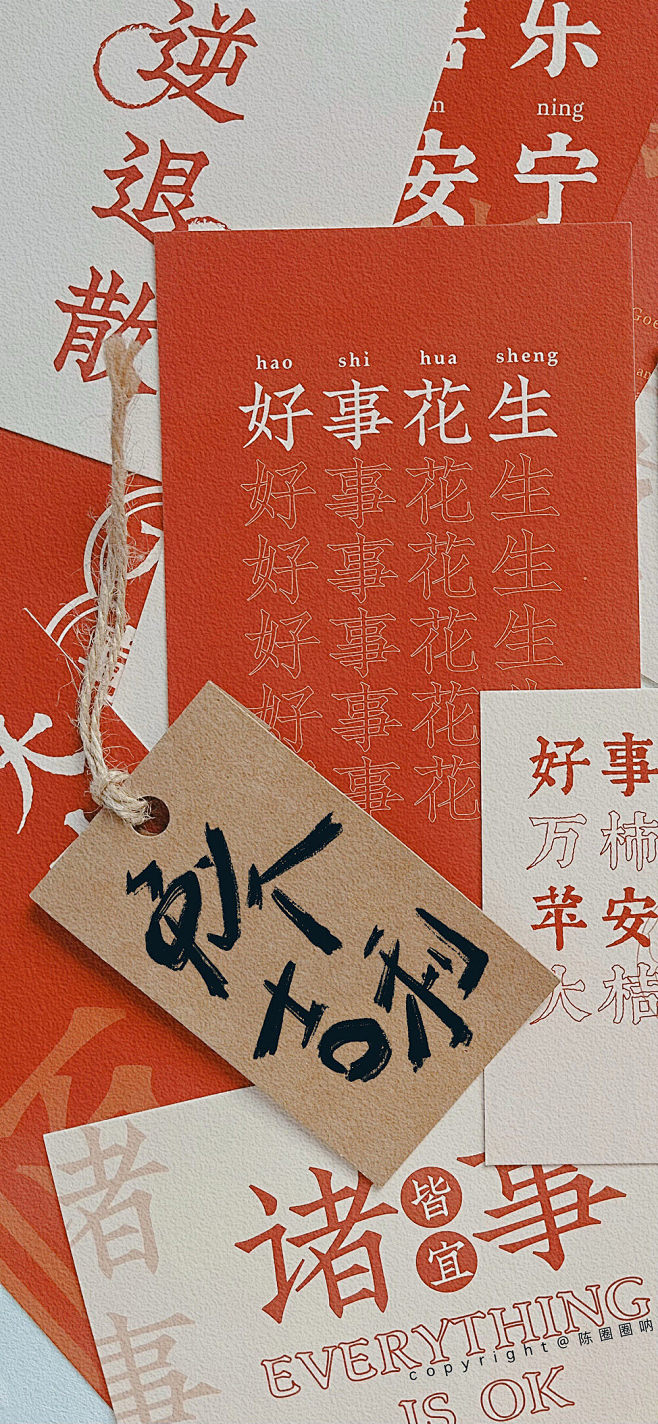 逆
退
散
乐
ning
安 宁
hao shi hua sheng
好事花生
好事花生
好事花生
好事花生
好事花
事花
好事
万柿
苹安
大桔
大
吉利
诸事
皆
宜
EVERYTHING
IS OK
copyright@陈圈圈呐
诸
事